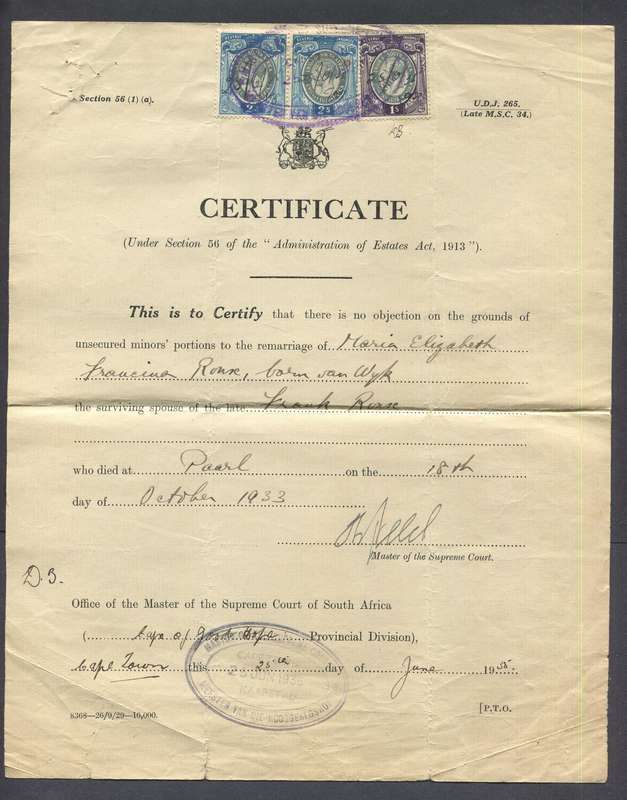 Section 56 (1) (a).
U.D.J. 265.
(Late M.S.C. 34.)
CERTIFICATE
(Under Section 56 of the " Administration of Estates Act, 1913 ").
This is to Certify that there is no objection on the grounds of
unsecured minors' portions to the remarriage of Maria Elizabeth
Francina Roux, born van Wyk
the surviving spouse of the late Frank Roux
who died at Paarl on the 18th
day of October 1933
Master of the Supreme Court.
D.3.
Office of the Master of the Supreme Court of South Africa
( Cape of Good Hope Provincial Division),
Cape Town this 25th day of June 19
8368—26/9/29—16,000.
[P.T.O.